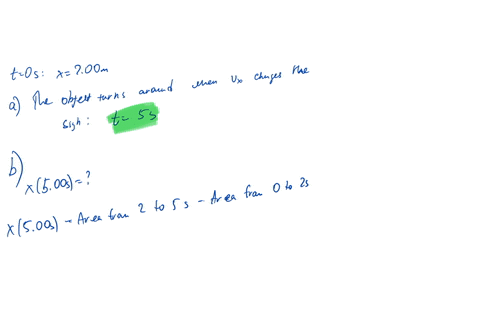 t=0s: x=7.00m
a) The object turns around when vx changes the
sign: t= 5s
b)
x(5.00s)=?
x(5.00s) = Area from 2 to 5 s - Area from 0 to 2s